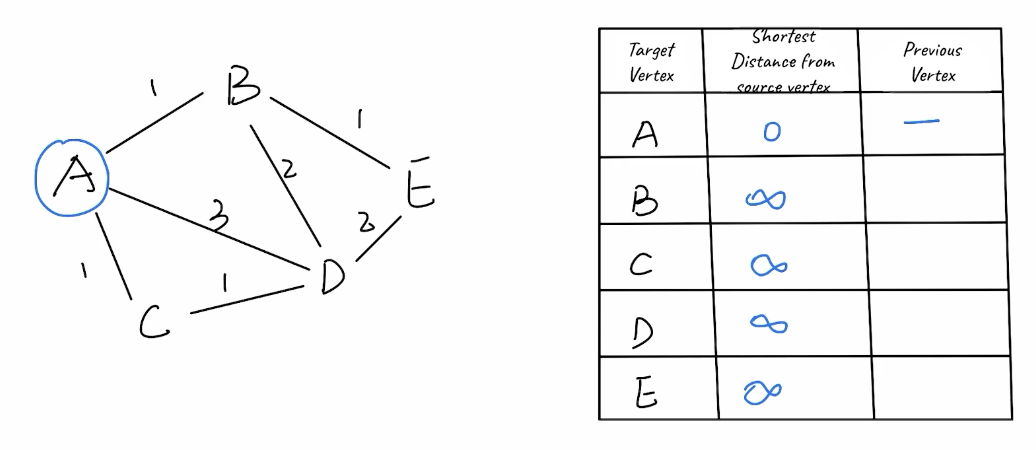 1
B
1
A
2
E
3
2
1
1
D
C
Target
Vertex
Shortest
Distance from
source vertex
Previous
Vertex
A 0 —
B ∞
C ∞
D ∞
E ∞